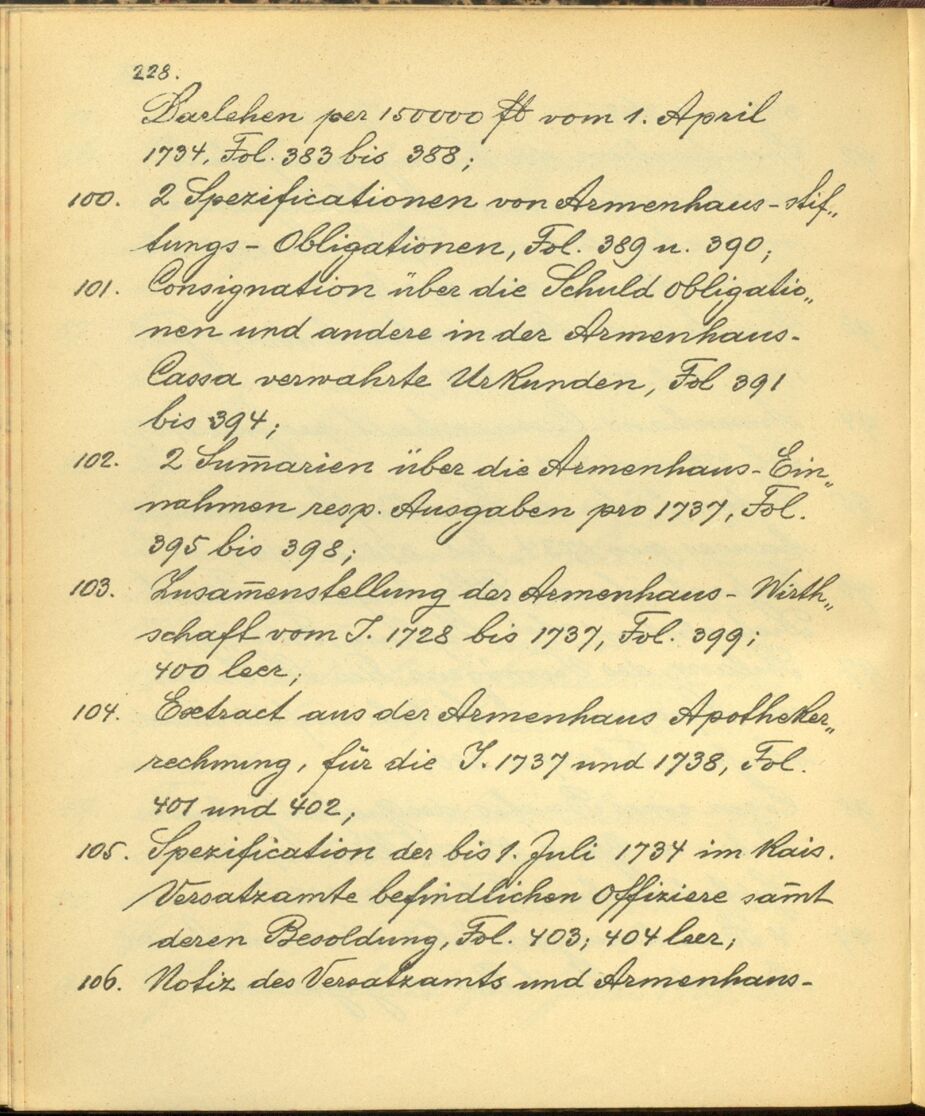 228.
Darlehen per 150000 fl vom 1. April
1734, Fol. 383 bis 388;
100. 2 Spezificationen von Armenhaus-stif„
tungs-Obligationen, Fol. 389 u. 390;
101. Consignation über die Schuld obligatio„
nen und andere in der Armenhaus-
Cassa verwahrte Urkunden, Fol 391
bis 394;
102. 2 Sum̄arien über die Armenhaus-Ein„
nahmen resp. Ausgaben pro 1737, Fol.
395 bis 398;
103. Zusam̄enstellung der Armenhaus-Wirth„
schaft vom J. 1728 bis 1737, Fol. 399;
400 leer;
104. Extract aus der Armenhaus Apotheker„
rechnung, für die J. 1737 und 1738, Fol.
401 und 402;
105. Spezification der bis 1. Juli 1734 im kais.
Versatzamte befindlichen Offiziere sam̄t
deren Besoldung, Fol. 403; 404 leer;
106. Notiz des Versatzamts und Armenhaus-